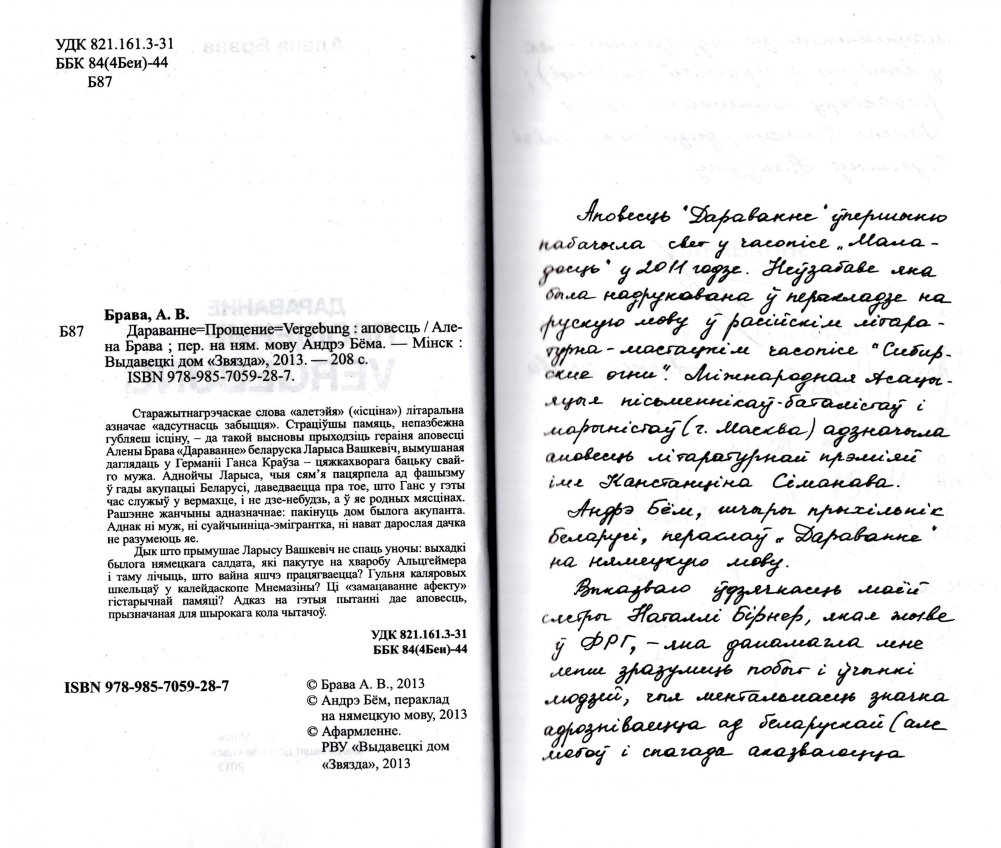 УДК 821.161.3-31
ББК 84(4Беи)-44
Б87
Брава, А. В.
Б87 Дараванне=Прощение=Vergebung : аповесць / Але-
на Брава ; пер. на ням. мову Андрэ Бёма. — Мінск :
Выдавецкі дом «Звязда», 2013. — 208 с.
ISBN 978-985-7059-28-7.
Старажытнагрэчаскае слова «алетэйя» («ісціна») літаральна
азначае «адсутнасць забыцця». Страціўшы памяць, непазбежна
губляеш ісціну, – да такой высновы прыходзіць гераіня аповесці
Алены Брава «Дараванне» беларуска Ларыса Вашкевіч, вымушаная
даглядаць у Германіі Ганса Краўза – цяжкахворага бацьку свай-
го мужа. Аднойчы Ларыса, чыя сям’я пацярпела ад фашызму
ў гады акупацыі Беларусі, даведваецца пра тое, што Ганс у гэты
час служыў у вермахце, і не дзе-небудзь, а ў яе родных мясцінах.
Рашэнне жанчыны адназначнае: пакінуць дом былога акупанта.
Аднак ні муж, ні суайчынніца-эмігрантка, ні нават дарослая дачка
не разумеюць яе.
Дык што прымушае Ларысу Вашкевіч не спаць уночы: выхадкі
былога нямецкага салдата, які пакутуе на хваробу Альцгеймера
і таму лічыць, што вайна яшчэ працягваецца? Гульня каляровых
шкельцаў у калейдаскопе Мнемазіны? Ці «замацаванне афекту»
гістарычнай памяці? Адказ на гэтыя пытанні дае аповесць,
прызначаная для шырокага кола чытачоў.
УДК 821.161.3-31
ББК 84(4Беи)-44
ISBN 978-985-7059-28-7
© Брава А. В., 2013
© Андрэ Бём, пераклад
на нямецкую мову, 2013
© Афармленне.
РВУ «Выдавецкі дом
«Звязда», 2013
Аповесць "Дараванне" ўпершыню
пабачыла свет у часопісе „Мала-
досць" у 2011 годзе. Неўзабаве яна
была надрукавана ў перакладзе на
рускую мову ў расійскім літара-
турна-мастацкім часопісе "Сибир-
ские огни". Міжнародная Асацы-
яцыя пісьменнікаў-баталістаў і
марыністаў (г. Масква) адзначыла
аповесць літаратурнай прэміяй
імя Канстанціна Сіманава.
Андрэ Бём, шчыры прыхільнік
Беларусі, пераклаў „Дараванне"
на нямецкую мову.
Выказваю ўдзячнасць маёй
сястры Наталлі Бірнер, якая жыве
ў ФРГ, – яна дапамагла мне
лепш зразумець побыт і ўчынкі
людзей, чыя ментальнасць значна
адрозніваецца ад беларускай (але
любоў і спагада аказваюцца